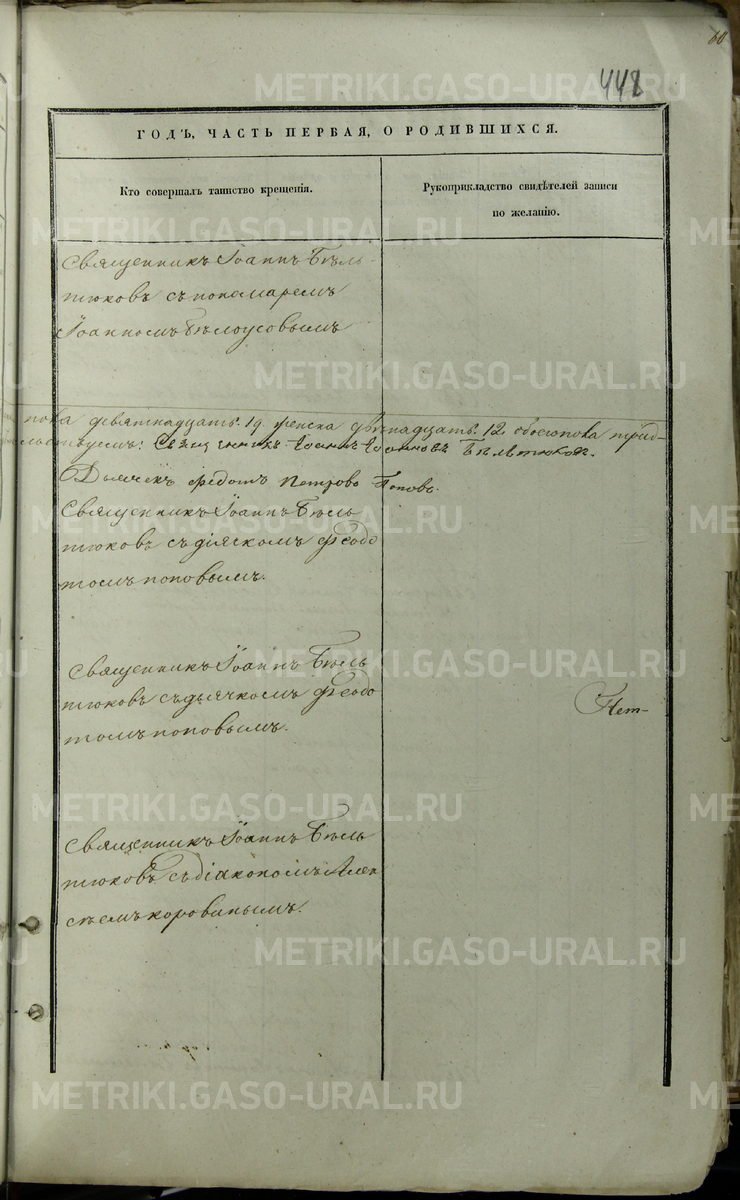 60
448
ГОДЪ, ЧАСТЬ ПЕРВАЯ, О РОДИВШИХСЯ.
Кто совершалъ таинство крещенія.
Рукоприкладство свидѣтелей записи
по желанію.
Священникъ Іоаннъ Бѣль
тюковъ съ пономаремъ
Іоанномъ Бѣлоусовымъ
пола девятнадцать. 19. женска двѣнадцать. 12. обоего пола трид-
Священникъ Іоаннъ Іоанновъ Бѣльтюковъ.
Дьячекъ Федотъ Петровъ Поповъ.
Священникъ Іоаннъ Бѣль
тюковъ съ діячкомъ Ѳеодо
томъ поповымъ.
Священникъ Іоаннъ Бѣль
тюковъ съ дьячкомъ Ѳеодо
томъ поповымъ.
Нет-
Священникъ Іоаннъ Бѣль
тюковъ съ діакономъ Алек
сѣемъ коровинымъ.
METRIKI.GASO-URAL.RU